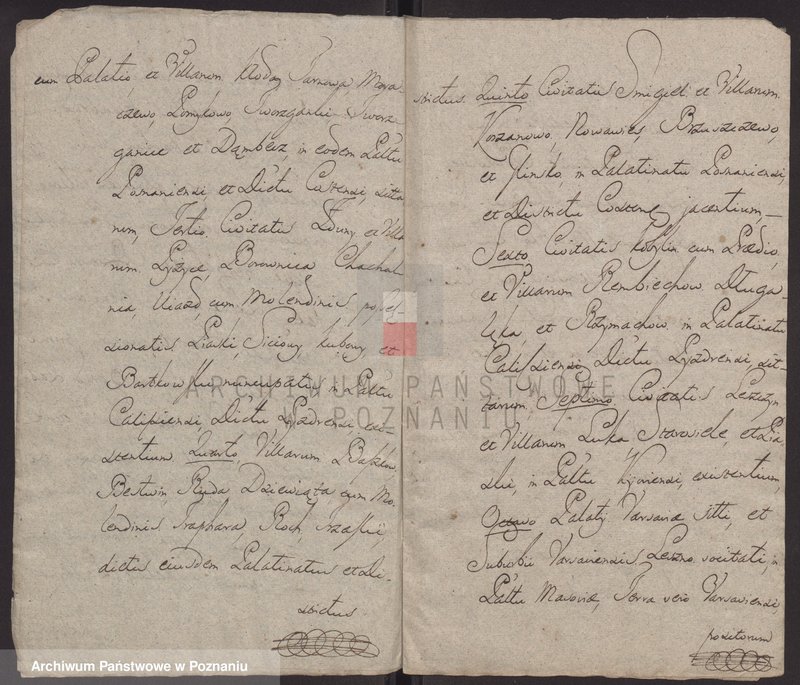 cum Palatio, et Villarum Kłody Tarnowa Mora-
czewo, Pomykowo, Tworzganki Tworz-
ganice et Dąmbcz, in eodem Pałtu
Posnaniensi, et Dictu Costensi, sitta
rum, Tertio. Civitatis Zduny et Villa
rum. Łyżyce, Borownica Chachal
nia, Uiazd, cum Molendinis posses-
sionatis Piaski Siciowy, kubowy, et
Bartkow sku nuncupatis, in Palttu
Calisiensi, Dictu Pyzdrensi, exi-
stentium. Quarto Villarum Baszkow,
Bestwin, Ruda Dziewiąta cum Mo-
lendinis Traphara Roch,
dictis eiusdem Palatinatus et Di-
strictus
strictus. Quinto Civitatis Smigiel et Villarum
Korzanowo, Nowawies, Bruszczewo,
et Glinsko, in Palatinatu Posnaniensi,
et Districtu Costensi jacentium,
Sexto Civitatis Kobylin cum Prædio,
et Villarum Rembiechow Długa-
łęka, et Rzymachow, in Palatinatu
Calissiensi Dictu Pyzdrensi, sit-
tarum, Septimo Civitatis Leszczyn
et Villarum Luka Starosiele, et Pia
ski, in Palttu Kijoviensi, existentium,
Octavo Palatij Varsaviæ siti, et
Suburbii Varsaviensis Leszno vocitati, in
Palttu Masoviæ, Terra vero Varsaviensi
positorum
ARCHIWUM PAŃSTWOWE
W POZNANIU
Archiwum Państwowe w Poznaniu